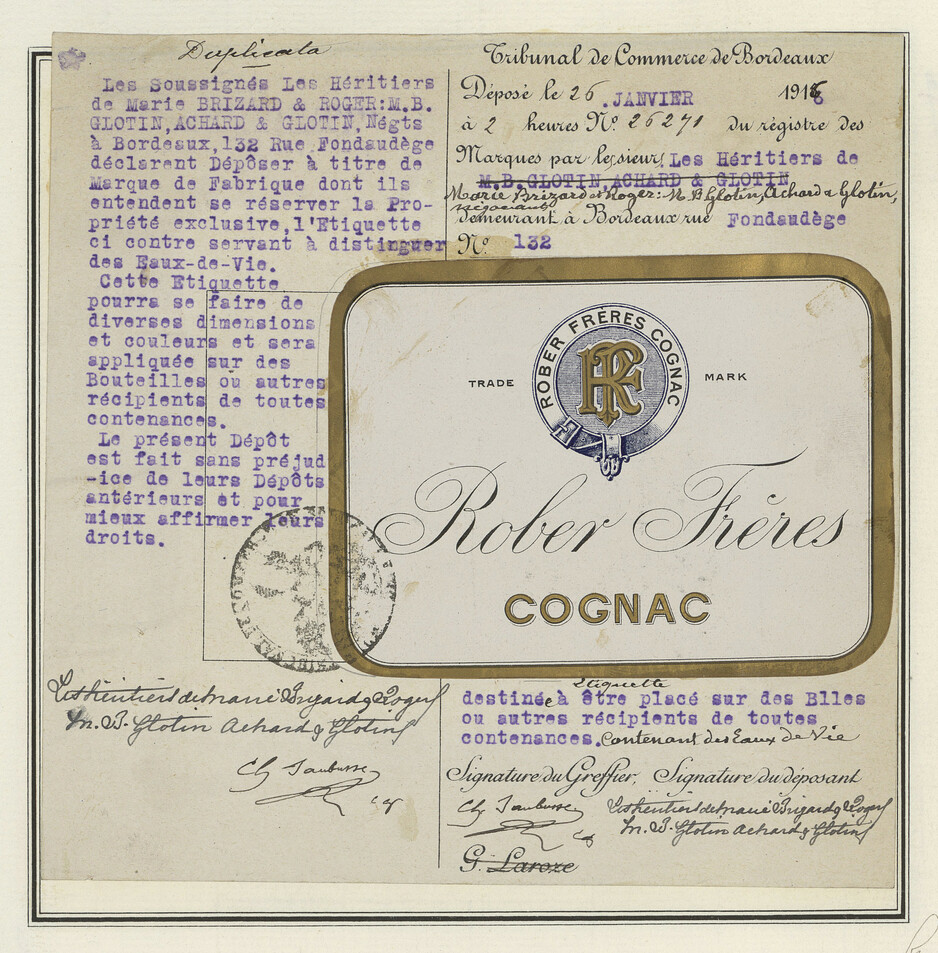 Duplicata
Les Soussignés Les Héritiers
de Marie BRIZARD & ROGER:M.B.
GLOTIN,ACHARD & GLOTIN,Négts
à Bordeaux,132 Rue Fondaudège
déclarent Déposer à titre de
Marque de Fabrique dont ils
entendent se réserver la Pro-
priété exclusive,l'Etiquette
ci contre servant à distinguer
des Eaux-de-Vie.
Cette Etiquette
pourra se faire de
diverses dimensions
et couleurs et sera
appliquée sur des
Bouteilles ou autres
récipients de toutes
contenances.
Le présent Dépôt
est fait sans préjud
-ice de leurs Dépôts
antérieurs et pour
mieux affirmer leurs
droits.
Les héritiers de Marie Brizard & Roger
M. B. Glotin Achard & Glotin
Ch Saubusse
Tribunal de Commerce de Bordeaux
Déposé le 26 .JANVIER 1916
à 2 heures N° 26271 du régistre des
Marques par le sieur Les Héritiers de
M.B.GLOTIN,ACHARD & GLOTIN
Marie Brizard et Roger: M. B. Glotin, Achard & Glotin,
négociants
demeurant à Bordeaux rue Fondaudège
N° 132
ROBER FRÈRES COGNAC
RF
TRADE MARK
Rober Frères
COGNAC
Etiquette
destinée à être placé sur des Blles
ou autres récipients de toutes
contenances. Contenant des Eaux de Vie
Signature du Greffier, Signature du déposant
Ch Saubusse
Les héritiers de Marie Brizard & Roger
M. B. Glotin Achard & Glotin
G. Laroze